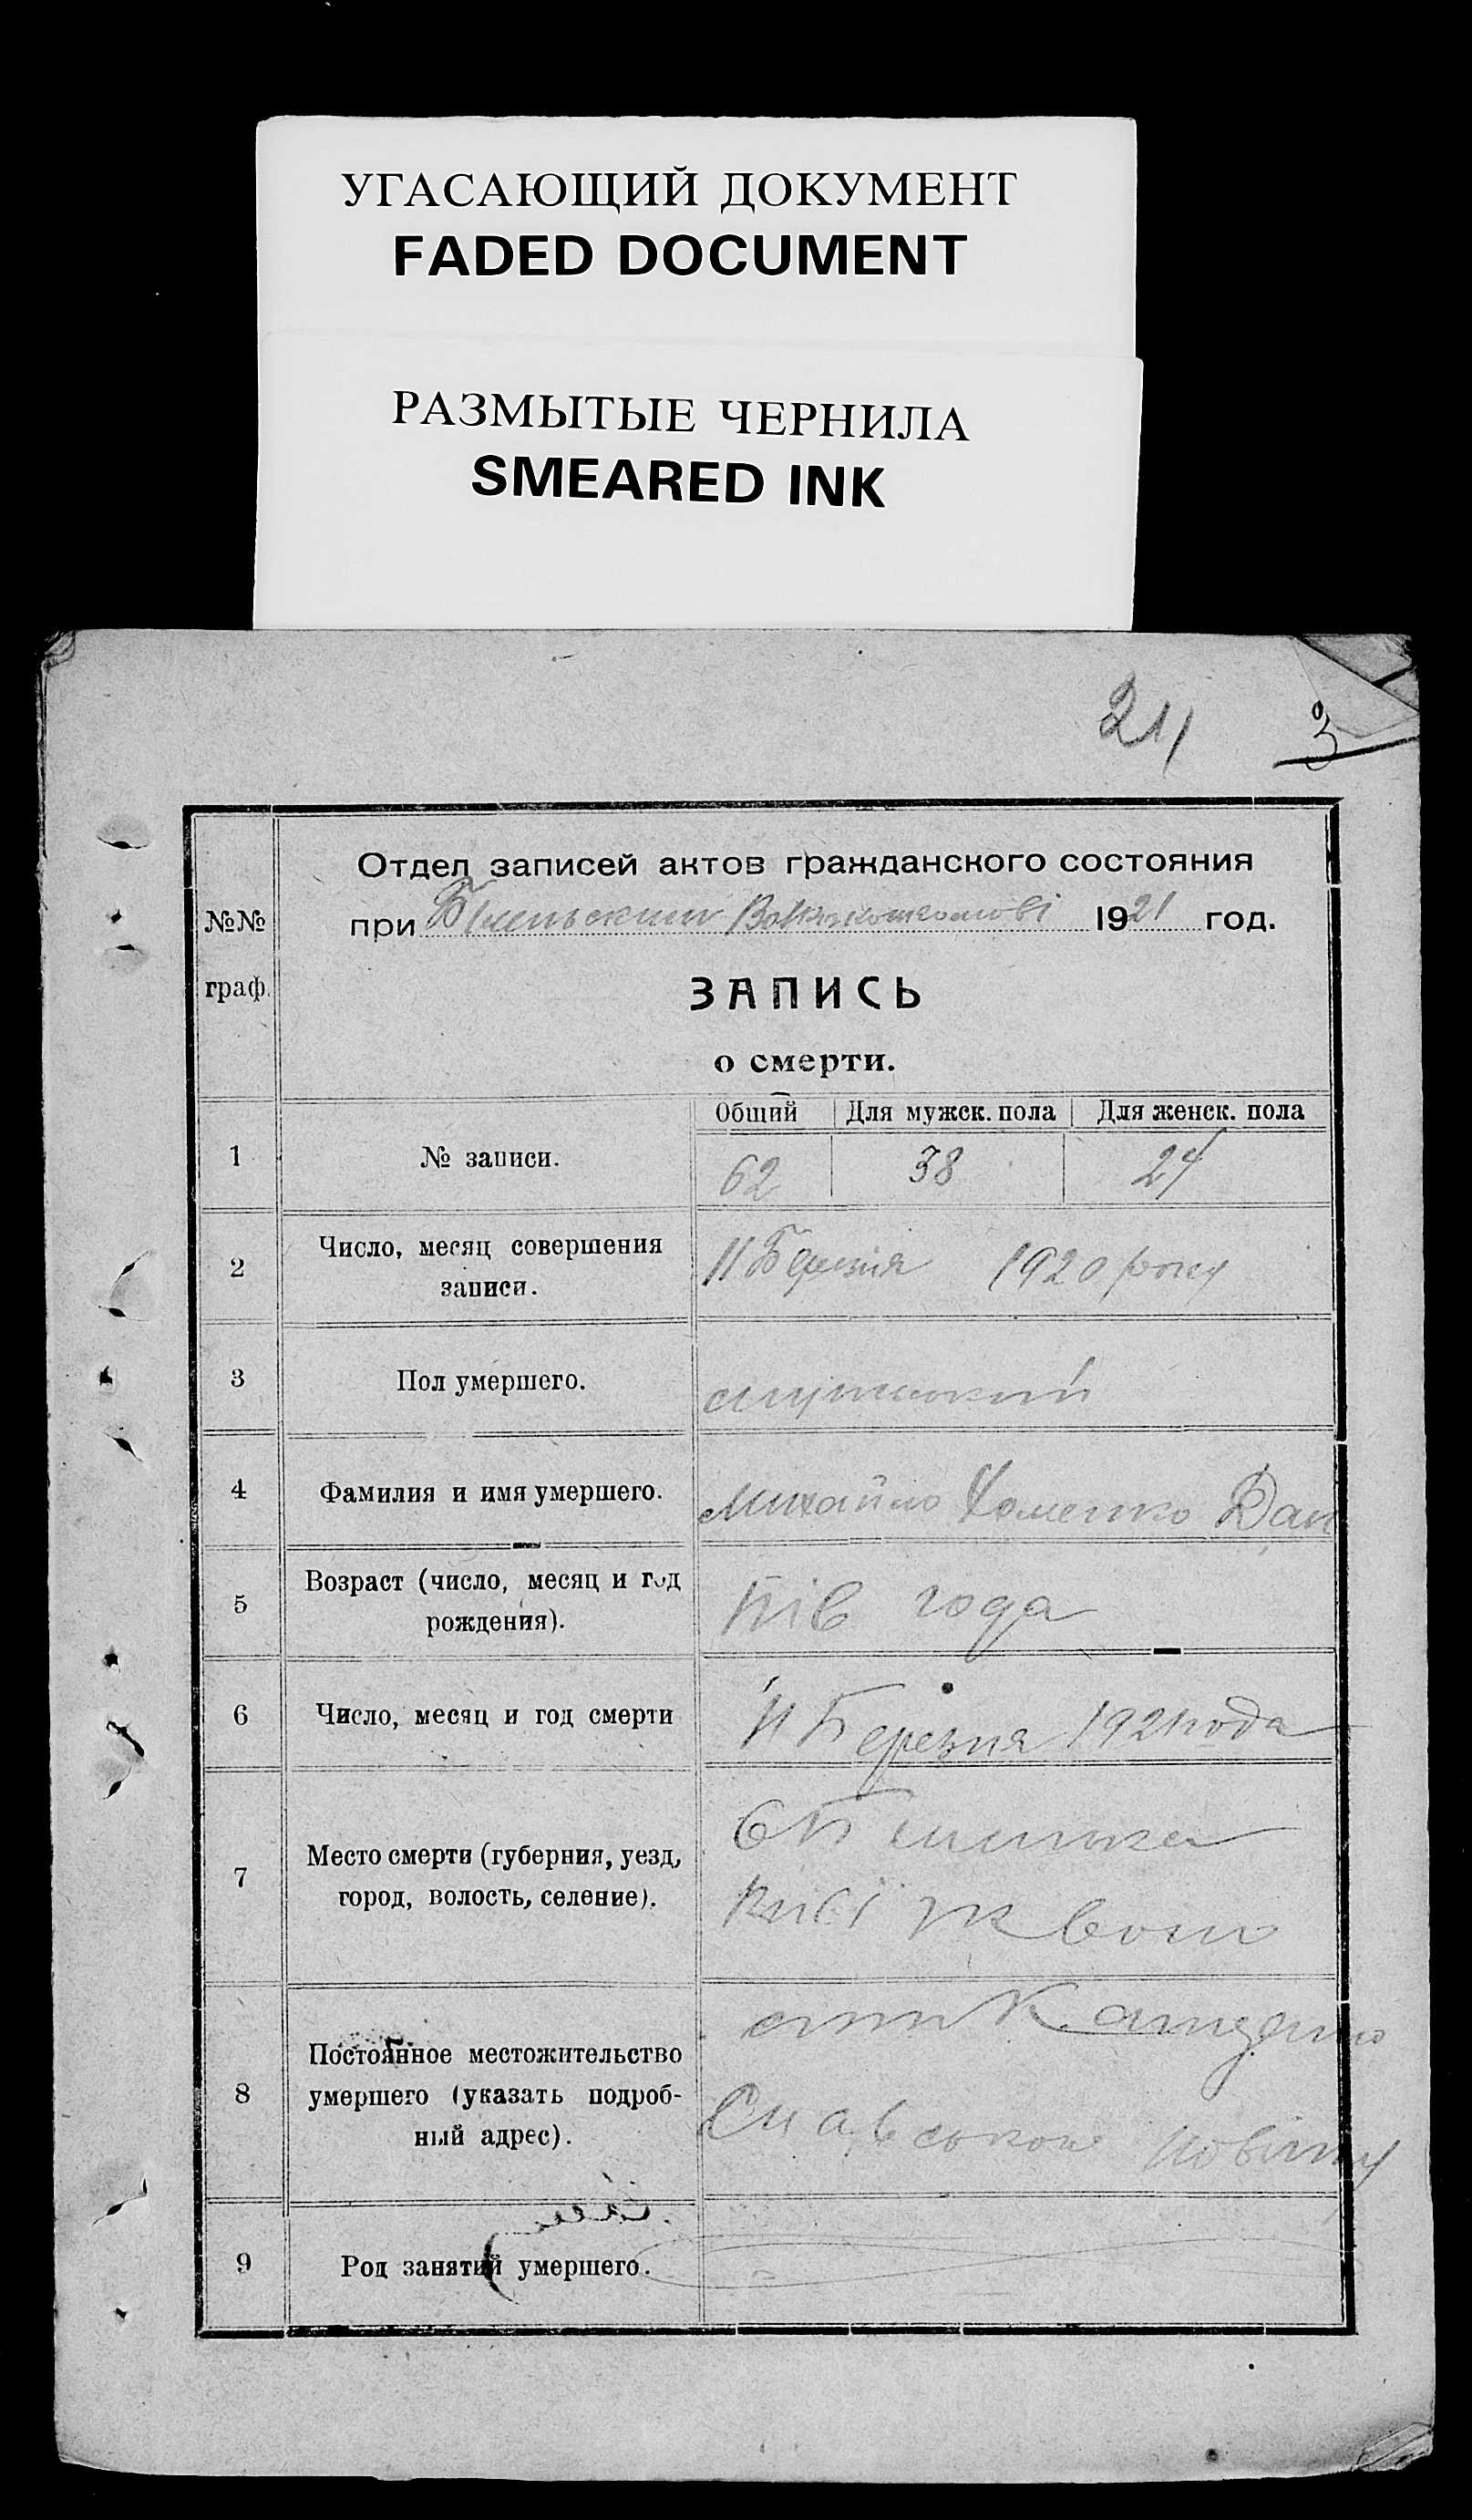 УГАСАЮЩИЙ ДОКУМЕНТ
FADED DOCUMENT
РАЗМЫТЫЕ ЧЕРНИЛА
SMEARED INK
21
3
№№
граф.
Отдел записей актов гражданского состояния
при 1921 год.
ЗАПИСЬ
о смерти.
Общий Для мужск. пола Для женск. пола
1 № записи. 62 38 24
2 Число, месяц совершения
записи.
11 Березня 1920 року
3 Пол умершего. мужський
4 Фамилия и имя умершего. Михайло Хоменко Дан
5 Возраст (число, месяц и год
рождения).
пів года
6 Число, месяц и год смерти 11 Березня 1921 года
7 Место смерти (губерния, уезд,
город, волость, селение).
8 Постоянное местожительство
умершего (указать подроб-
ный адрес).
повіту
9 Род занятий умершего.